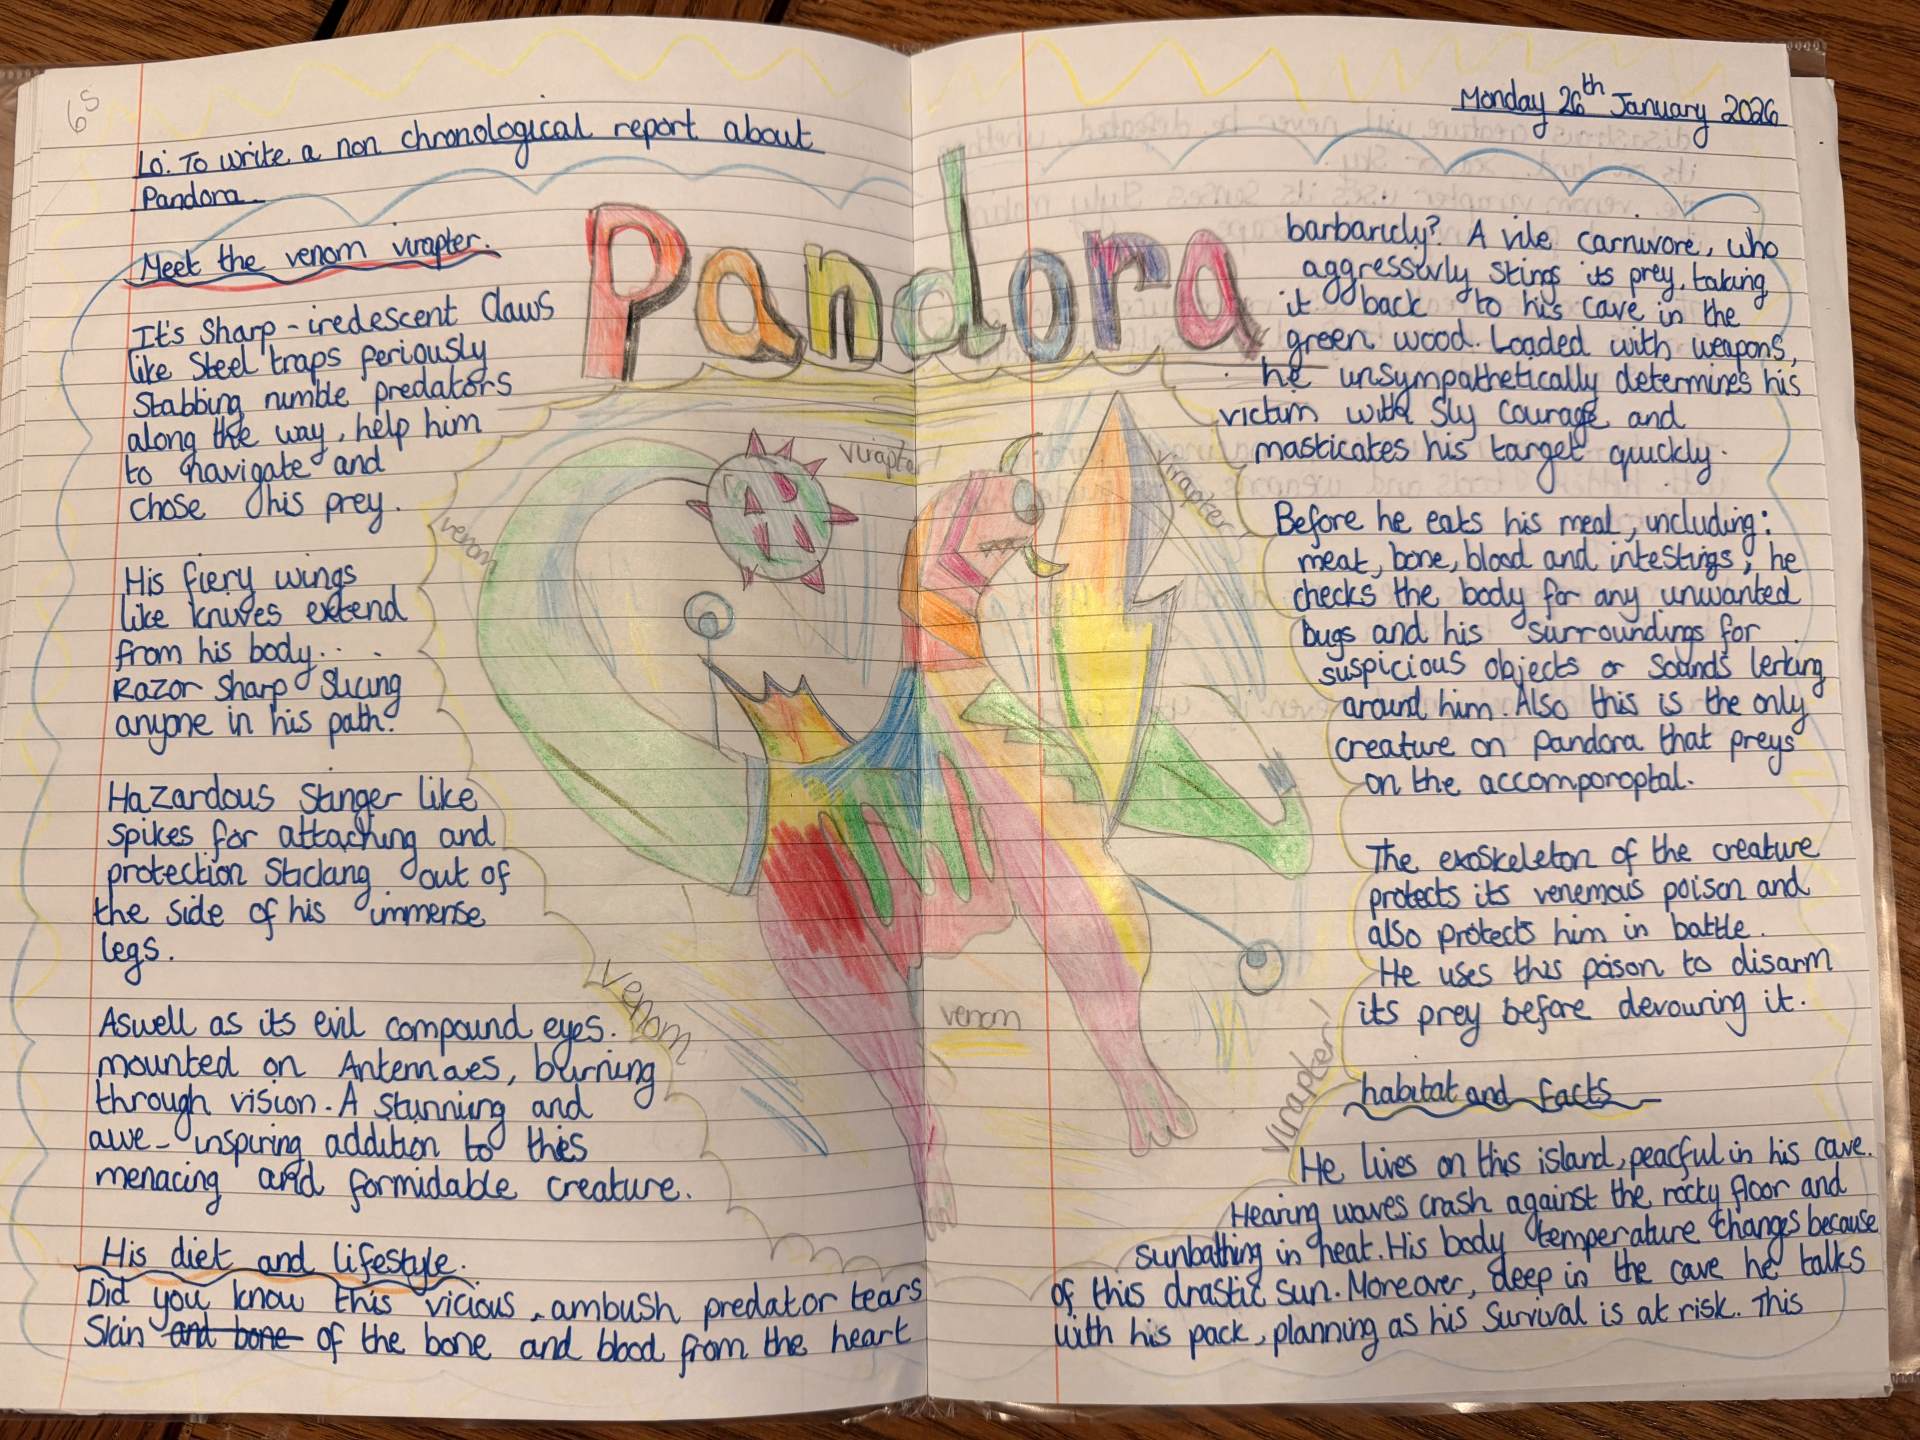 6s
Lo: To write a non chronological report about
Pandora.
Monday 26th January 2026
Pandora
Meet the venom virapter.
It's Sharp - iredescent Claws
like Steel traps feriously
Stabbing numble predators
along the way, help him
to navigate and
chose his prey.
His fiery wings
like knives extend
from his body...
Razor Sharp Slicing
anyone in his path.
Hazardous Stinger like
Spikes for attaching and
protection Sticking out of
the side of his immense
legs.
Aswell as its evil compound eyes.
mounted on Antennaes, burning
through vision. A Stunning and
awe-inspiring addition to this
menacing and formidable creature.
His diet and lifestyle.
Did you know this vicious, ambush predator tears
Skin and bone of the bone and blood from the heart
virapter
venom
virapter
venom
venom
virapter
barbaricly? A vile carnivore, who
aggressivly Stings its prey, taking
it back to his cave in the
green wood. Loaded with weapons,
he unsympathetically determines his
victim with Sly Courage and
masticates his target quickly.
Before he eats his meal, including:
meat, bone, blood and intestings, he
checks the body for any unwanted
bugs and his surroundings for
suspicious objects or Sounds lerking
around him. Also this is the only
creature on Pandora that preys
on the accomporoptal.
The exoskeleton of the creature
protects its venemous poison and
also protects him in battle.
He uses this poison to disarm
its prey before devouring it.
habitat and facts
He lives on this island, peacful in his cave.
Hearing waves crash against the rocky floor and
sunbathing in heat. His body temperature changes because
of this drastic sun. Moreover, deep in the cave he talks
with his pack, planning as his Survival is at risk. This